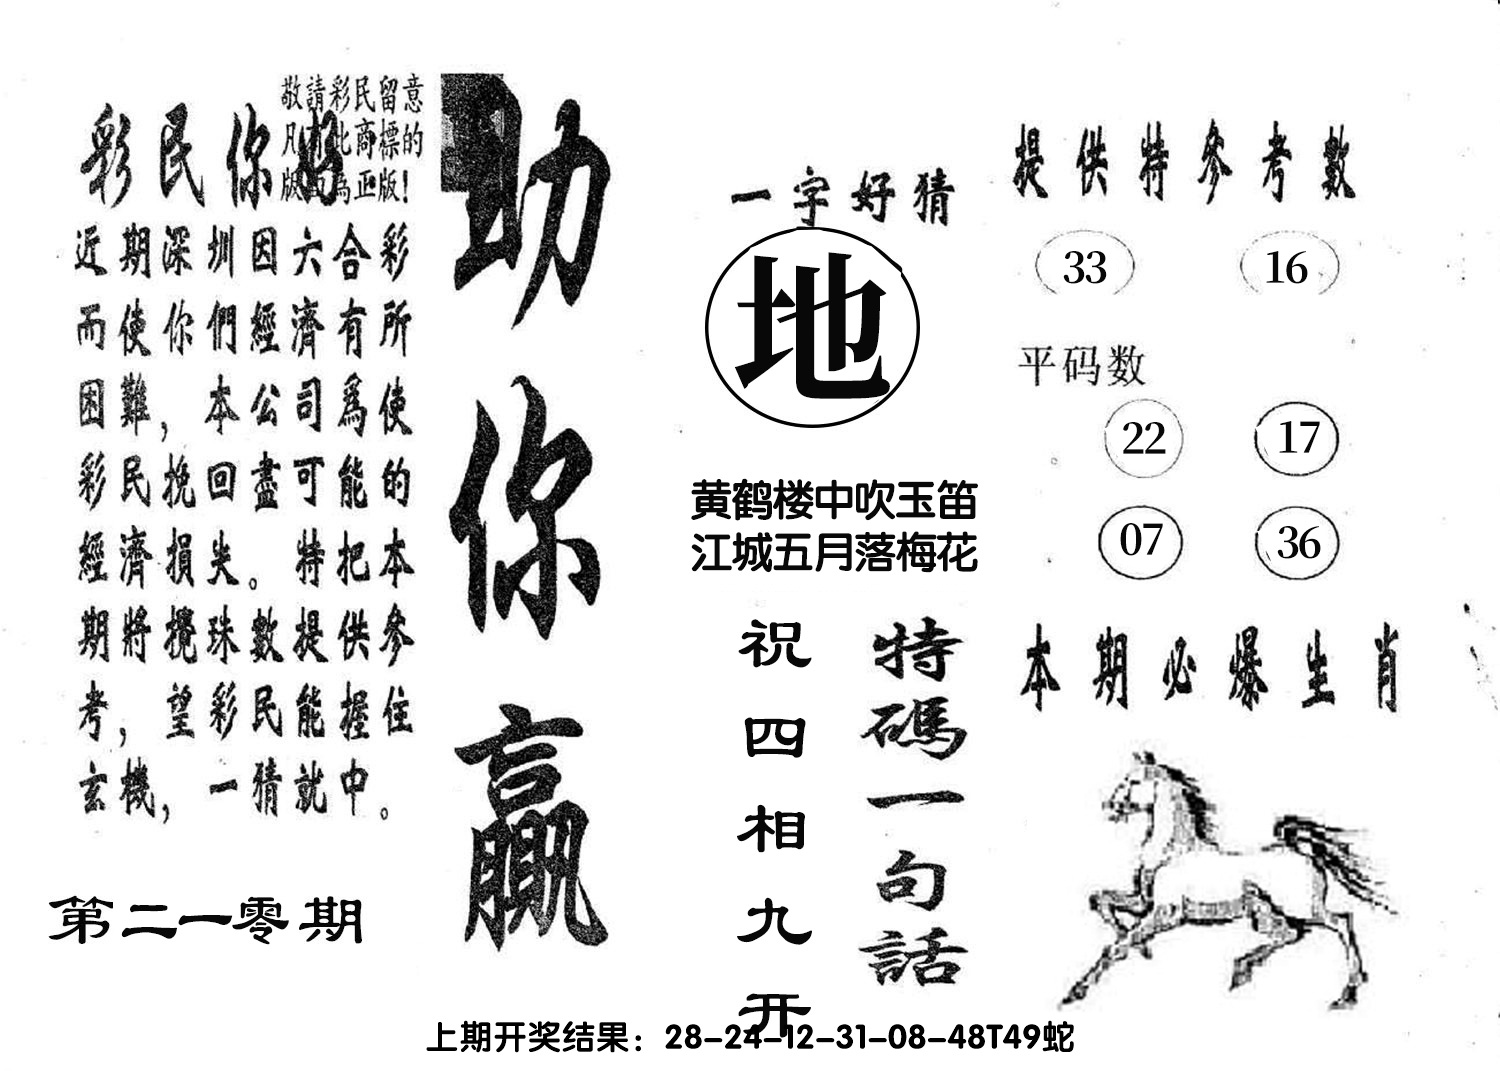 敬請彩民留意
凡有此商標的
版面為正版!
彩民你好
近期深圳因六合彩
而使你們經濟有所
困難，本公司爲使
彩民挽回盡可能的
經濟損失。特把本
期將攪珠數提供參
考，望彩民能握住
玄機，一猜就中。
第二一零期
助你贏
一字好猜
地
黄鹤楼中吹玉笛
江城五月落梅花
特碼一句話
祝四相九开
提供特參考數
33 16
平码数
22 17
07 36
本期必爆生肖
上期开奖结果：28-24-12-31-08-48T49蛇